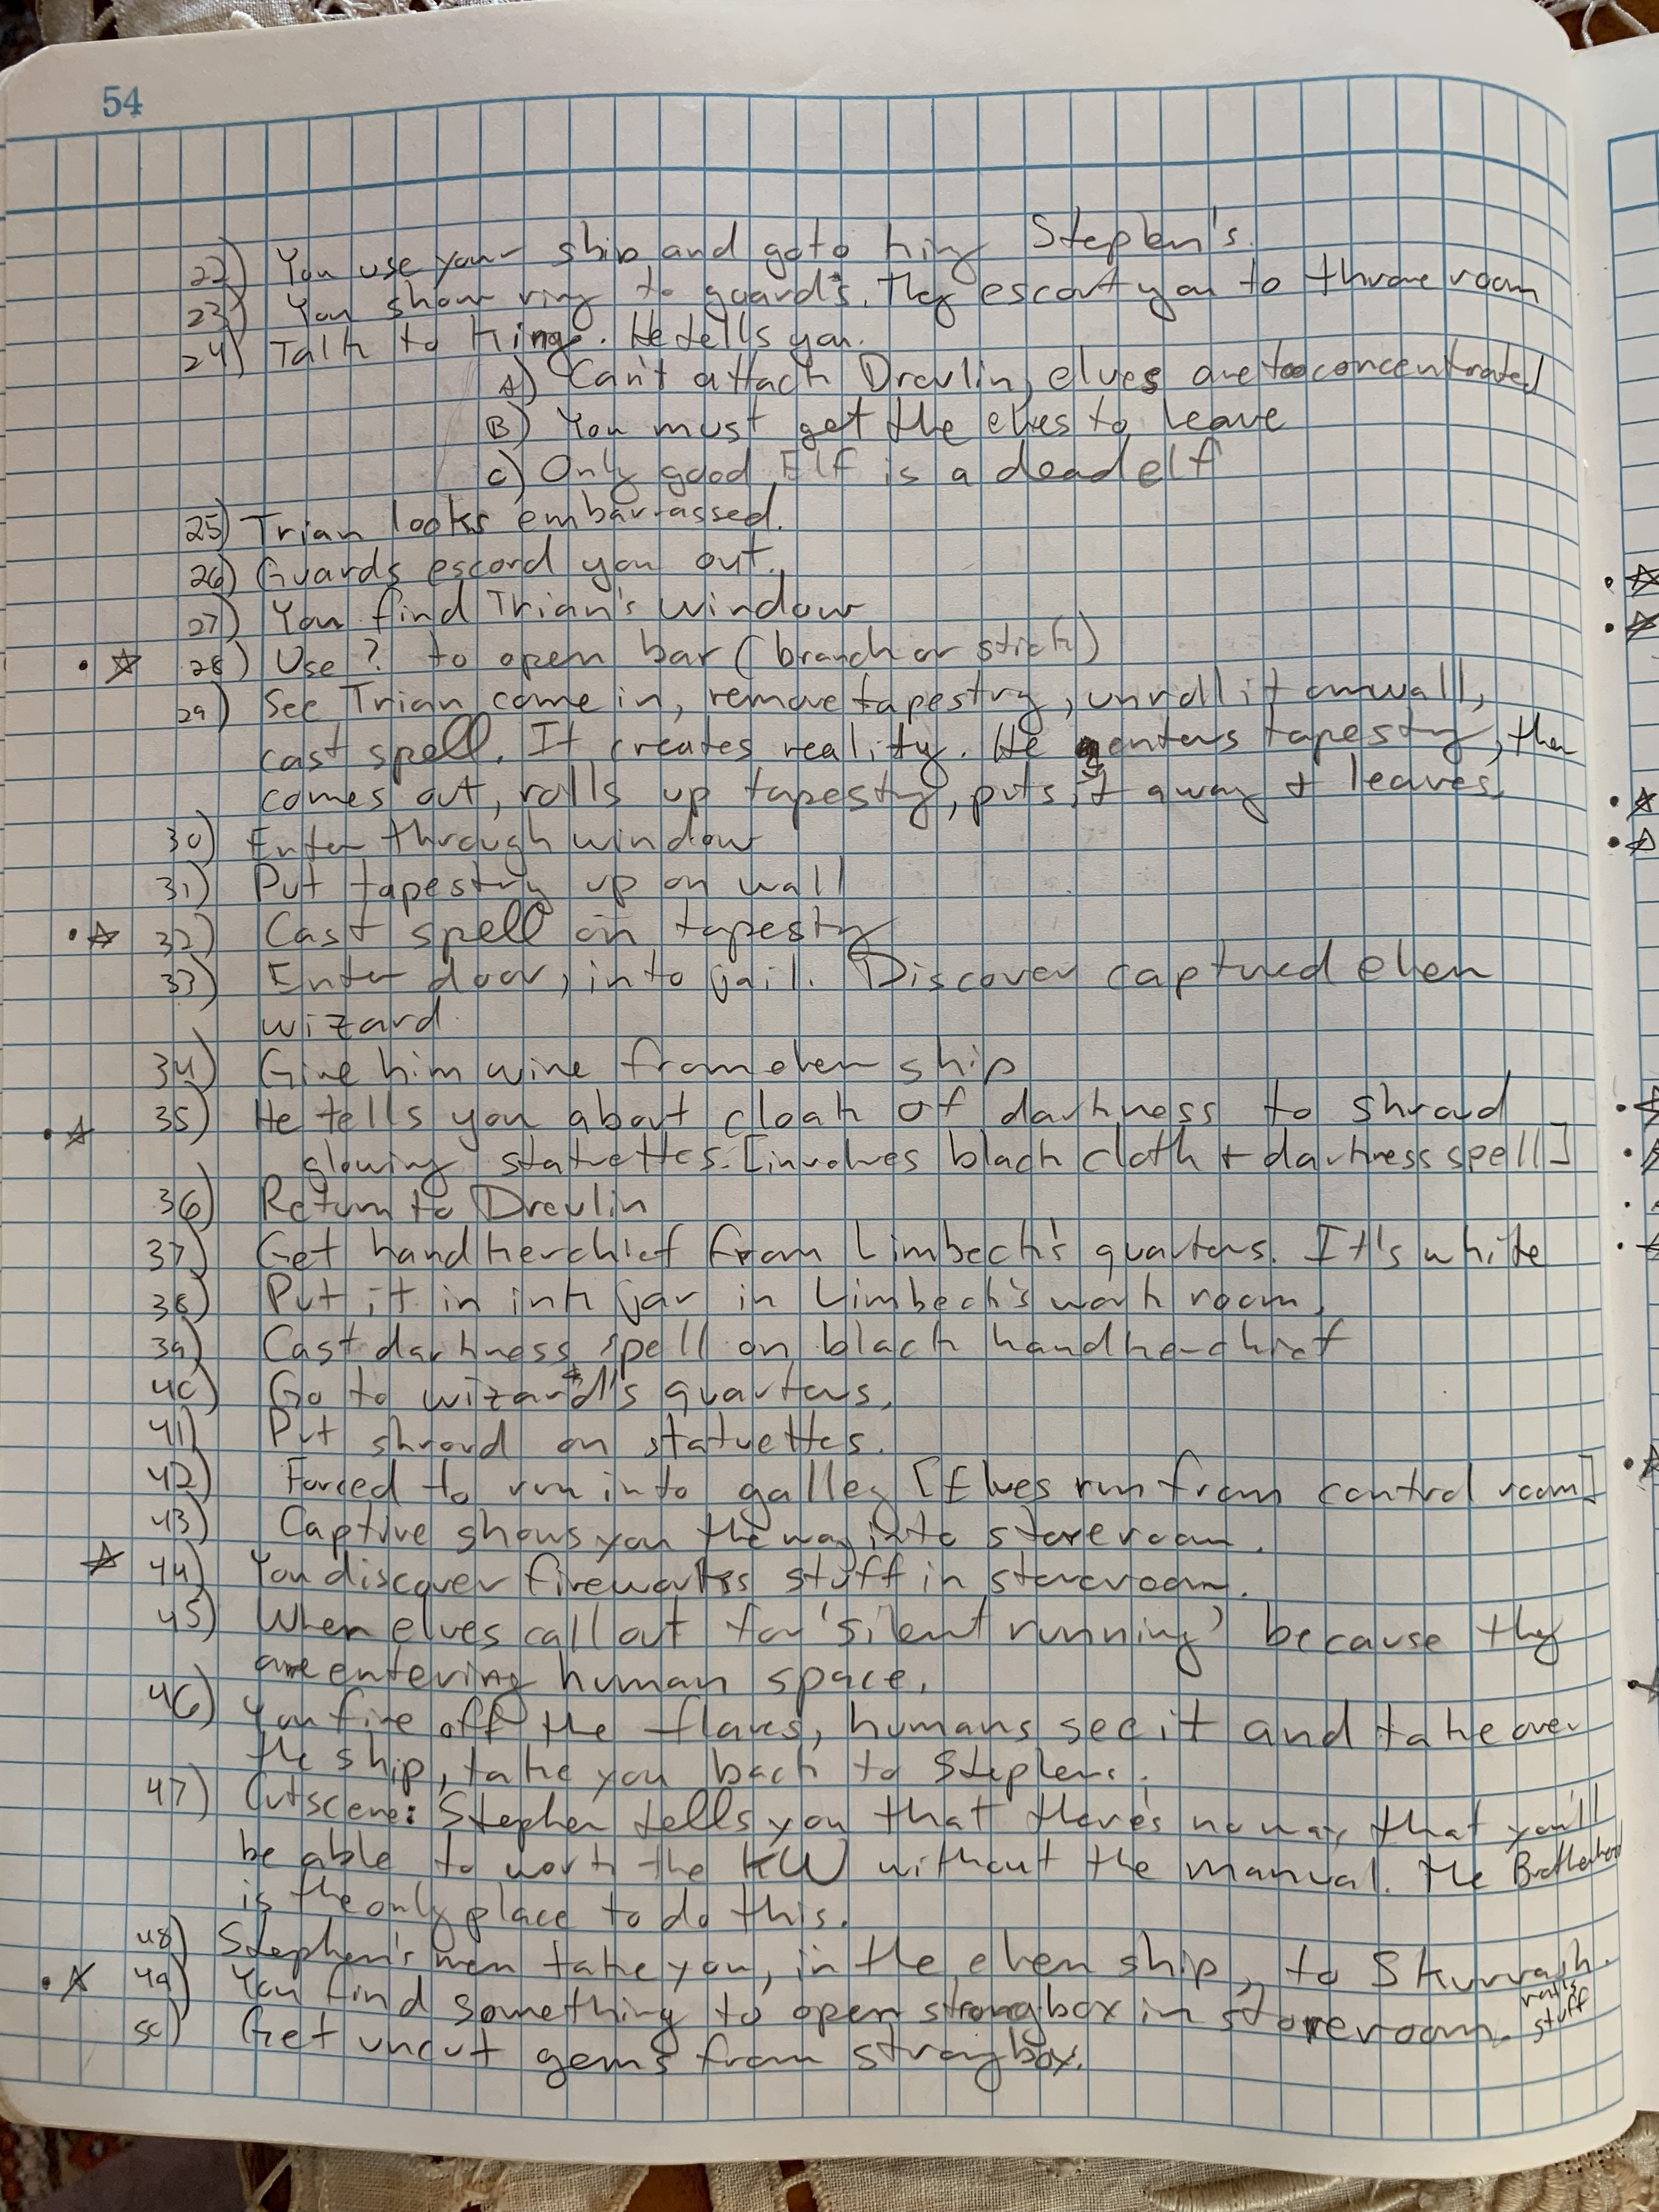 54
22) You use your ship and goto king Stephen's.
23) You show ring to guards. They escort you to throne room
24) Talk to king. He tells you.
A) Can't attack Drevlin, elves are too concentrated
B) You must get the elves to leave
C) Only good Elf is a dead elf
25) Trian looks embarrassed.
26) Guards escord you out.
27) You find Trian's window
28) Use ? to open bar (branch or stick)
29) See Trian come in, remove tapestry, unroll it on wall,
cast spell. It creates reality. He enters tapestry, then
comes out, rolls up tapestry, puts it away + leaves.
30) Enter through window
31) Put tapestry up on wall
32) Cast spell on tapesty
33) Enter door, into jail. Discover captured elven
wizard.
34) Give him wine from elven ship
35) He tells you about cloak of darkness to shroud
glowing statuettes. [involves black cloth + darkness spell]
36) Return to Drevlin
37) Get handkerchief from Limbeck's quarters. It's white
38) Put it in ink jar in Limbeck's work room.
39) Cast darkness spell on black handkerchief
40) Go to wizard's quarters.
41) Put shroud on statuettes.
42) Forced to run into galley [Elves run from control room]
43) Captive shows you the way into storeroom.
44) You discover fireworks stuff in storeroom.
45) When elves call out for 'silent running' because they
are entering human space.
46) You fire off the flares, humans see it and take over
the ship, take you back to Stephens.
47) Cutscene: Stephen tells you that there's no way that you'll
be able to work the KW without the manual. The Brotherhood
is the only place to do this.
48) Stephen's men take you, in the elven ship, to Skurvash.
49) You find something to open strongbox in storeroom.
stuff
50) Get uncut gems from strongbox.